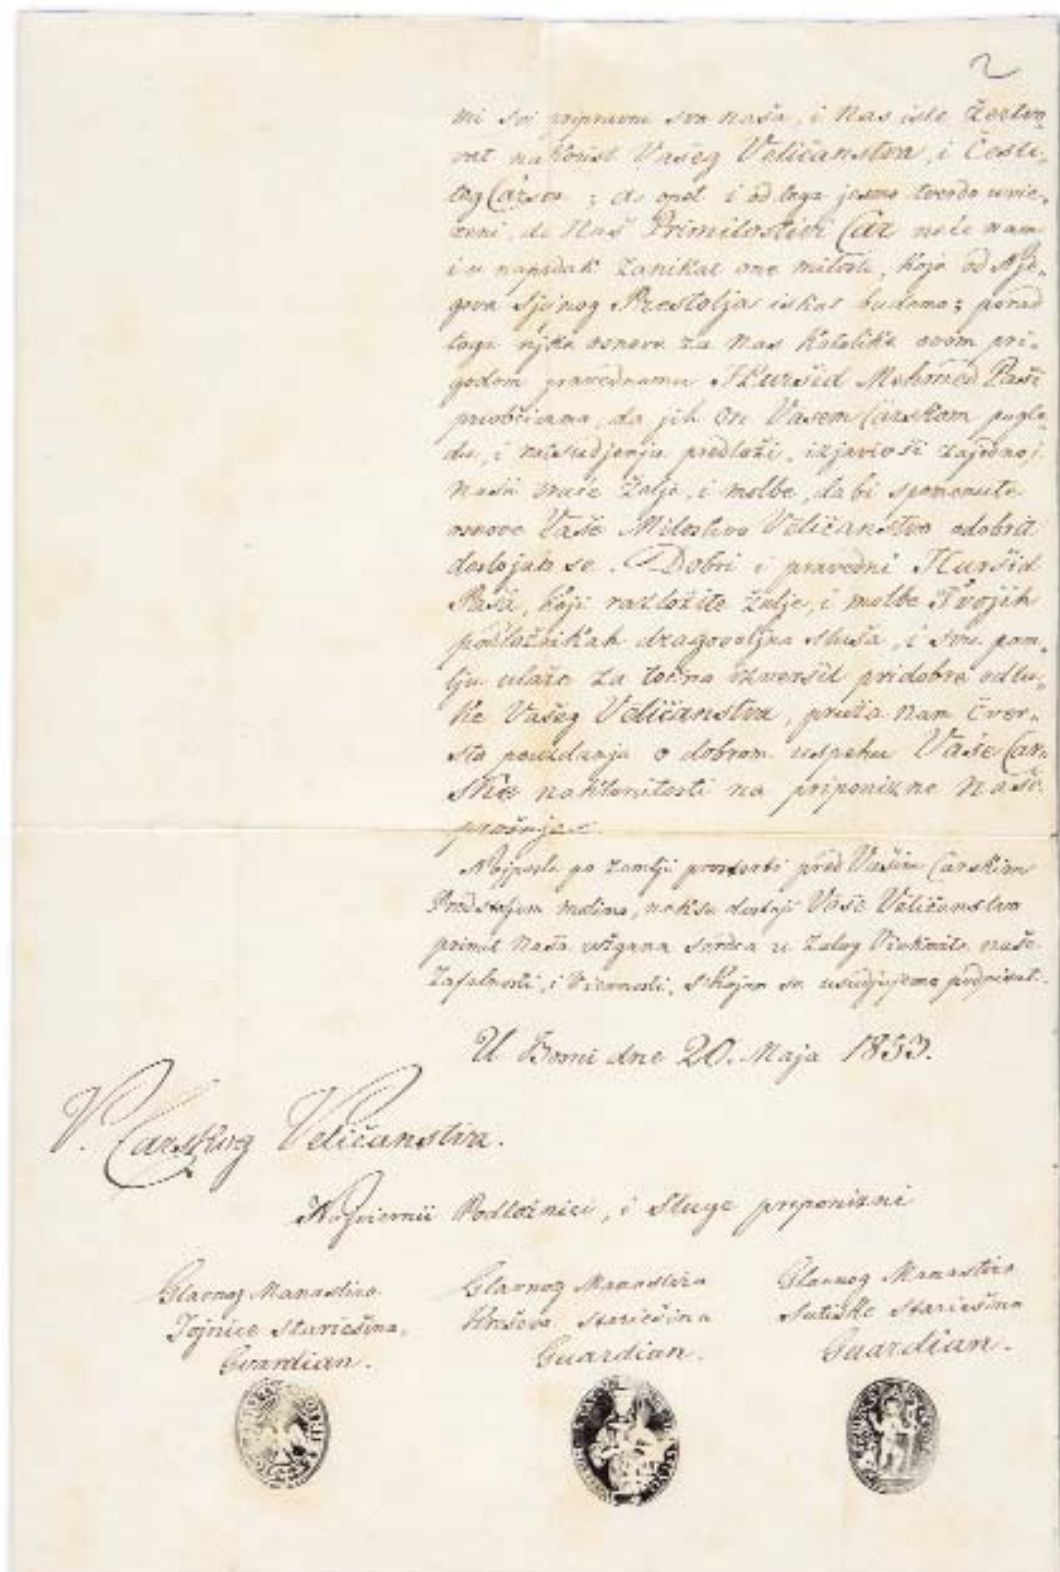 2
mi svi pripravni sva naša, i Nas iste žertvo-
vat na korist Vašeg Veličanstva, i Česti-
tog Carsva; da opet i od toga jesmo tverdo uvie-
reni, da Naš Primilostivi Car neće nam
i u naprědak zanikat one milosti, koje od Nje-
gova Sjajnog Prestolja iskat budemo; porad
toga njike osnove za Nas Katolike ovom pri-
godom pravednomu Huršid Mehmed Paši
priobćivamo, da jih On Vašem Carskom pogle-
du, i razsudjenju predloži, izjavivši zajedno,
naše vruće želje, i molbe, da bi spomenute
osnove Vaše Milostivo Veličanstvo odobrit
dostojalo se. Dobri i pravedni Huršid
Paša, koji razložite želje, i molbe Tvojih
podložnikah dragovoljno sluša, i svu pom-
lju ulaže za točno izveršit pridobre odlu-
ke Vašeg Veličanstva, pruža nam čver-
sto pouzdanje o dobrom uspehu Vaše Car-
ske naklonitosti na priponizne Naše
prošnje.
Najposle po zemlji prostrti pred Vašim Carskim
Predstoljem molimo, nek se dostoji Vaše Veličanstvo
primit Naša užgana serdca u zalog Viekovite naše
Zafalnosti, i Viernosti, s kojom se usudjujemo podpisat.
U Bosni dne 20. Maja 1853.
V. Carskog Veličanstva.
Najviernii Podložnici, i Sluge preponizni
Glavnog Manastira
Fojnice Stariešina,
Gvardian.
Glavnog Manastira
Kreševa Stariešina
Guardian.
Glavnog Manastira
Sutiske Starešina
Guardian.